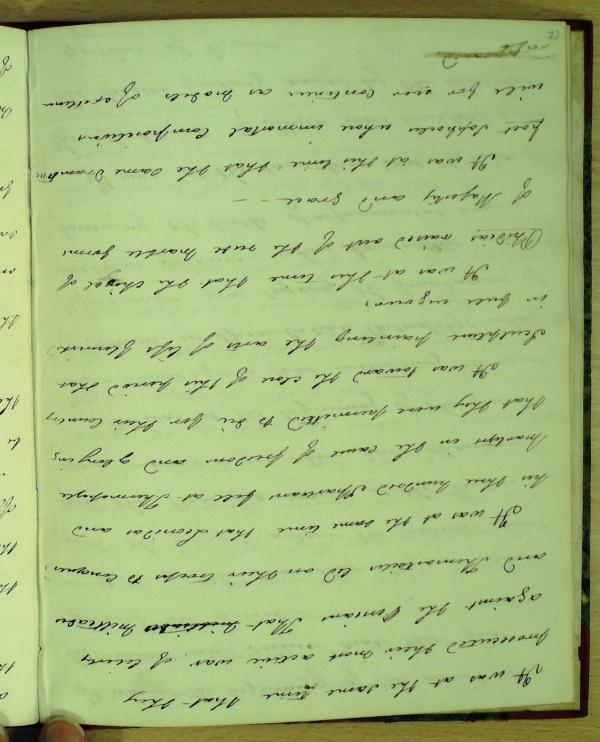 It was at the same time that they
prosecuted their most active war of liberty
against the Persians That Miltiades
and Themistocles led on their troops to conquer,
It was at the same time that Leonidas and
his three hundred Spartans fell at Thermopyle
Martyrs in the cause of freedom and glorying
that they were permitted to die for their Country
It was toward the close of this period that
Sculpture painting the arts of life flourished
in full vigour,
It was at this time that the chisel of
Phidias raised out of the rude marble forms
of Majesty and Grace - -
It was at this time that the same Dramatic
poet Sophocles whose immortal compositions
will for ever continue as models of
23